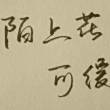 陌上花
可缓